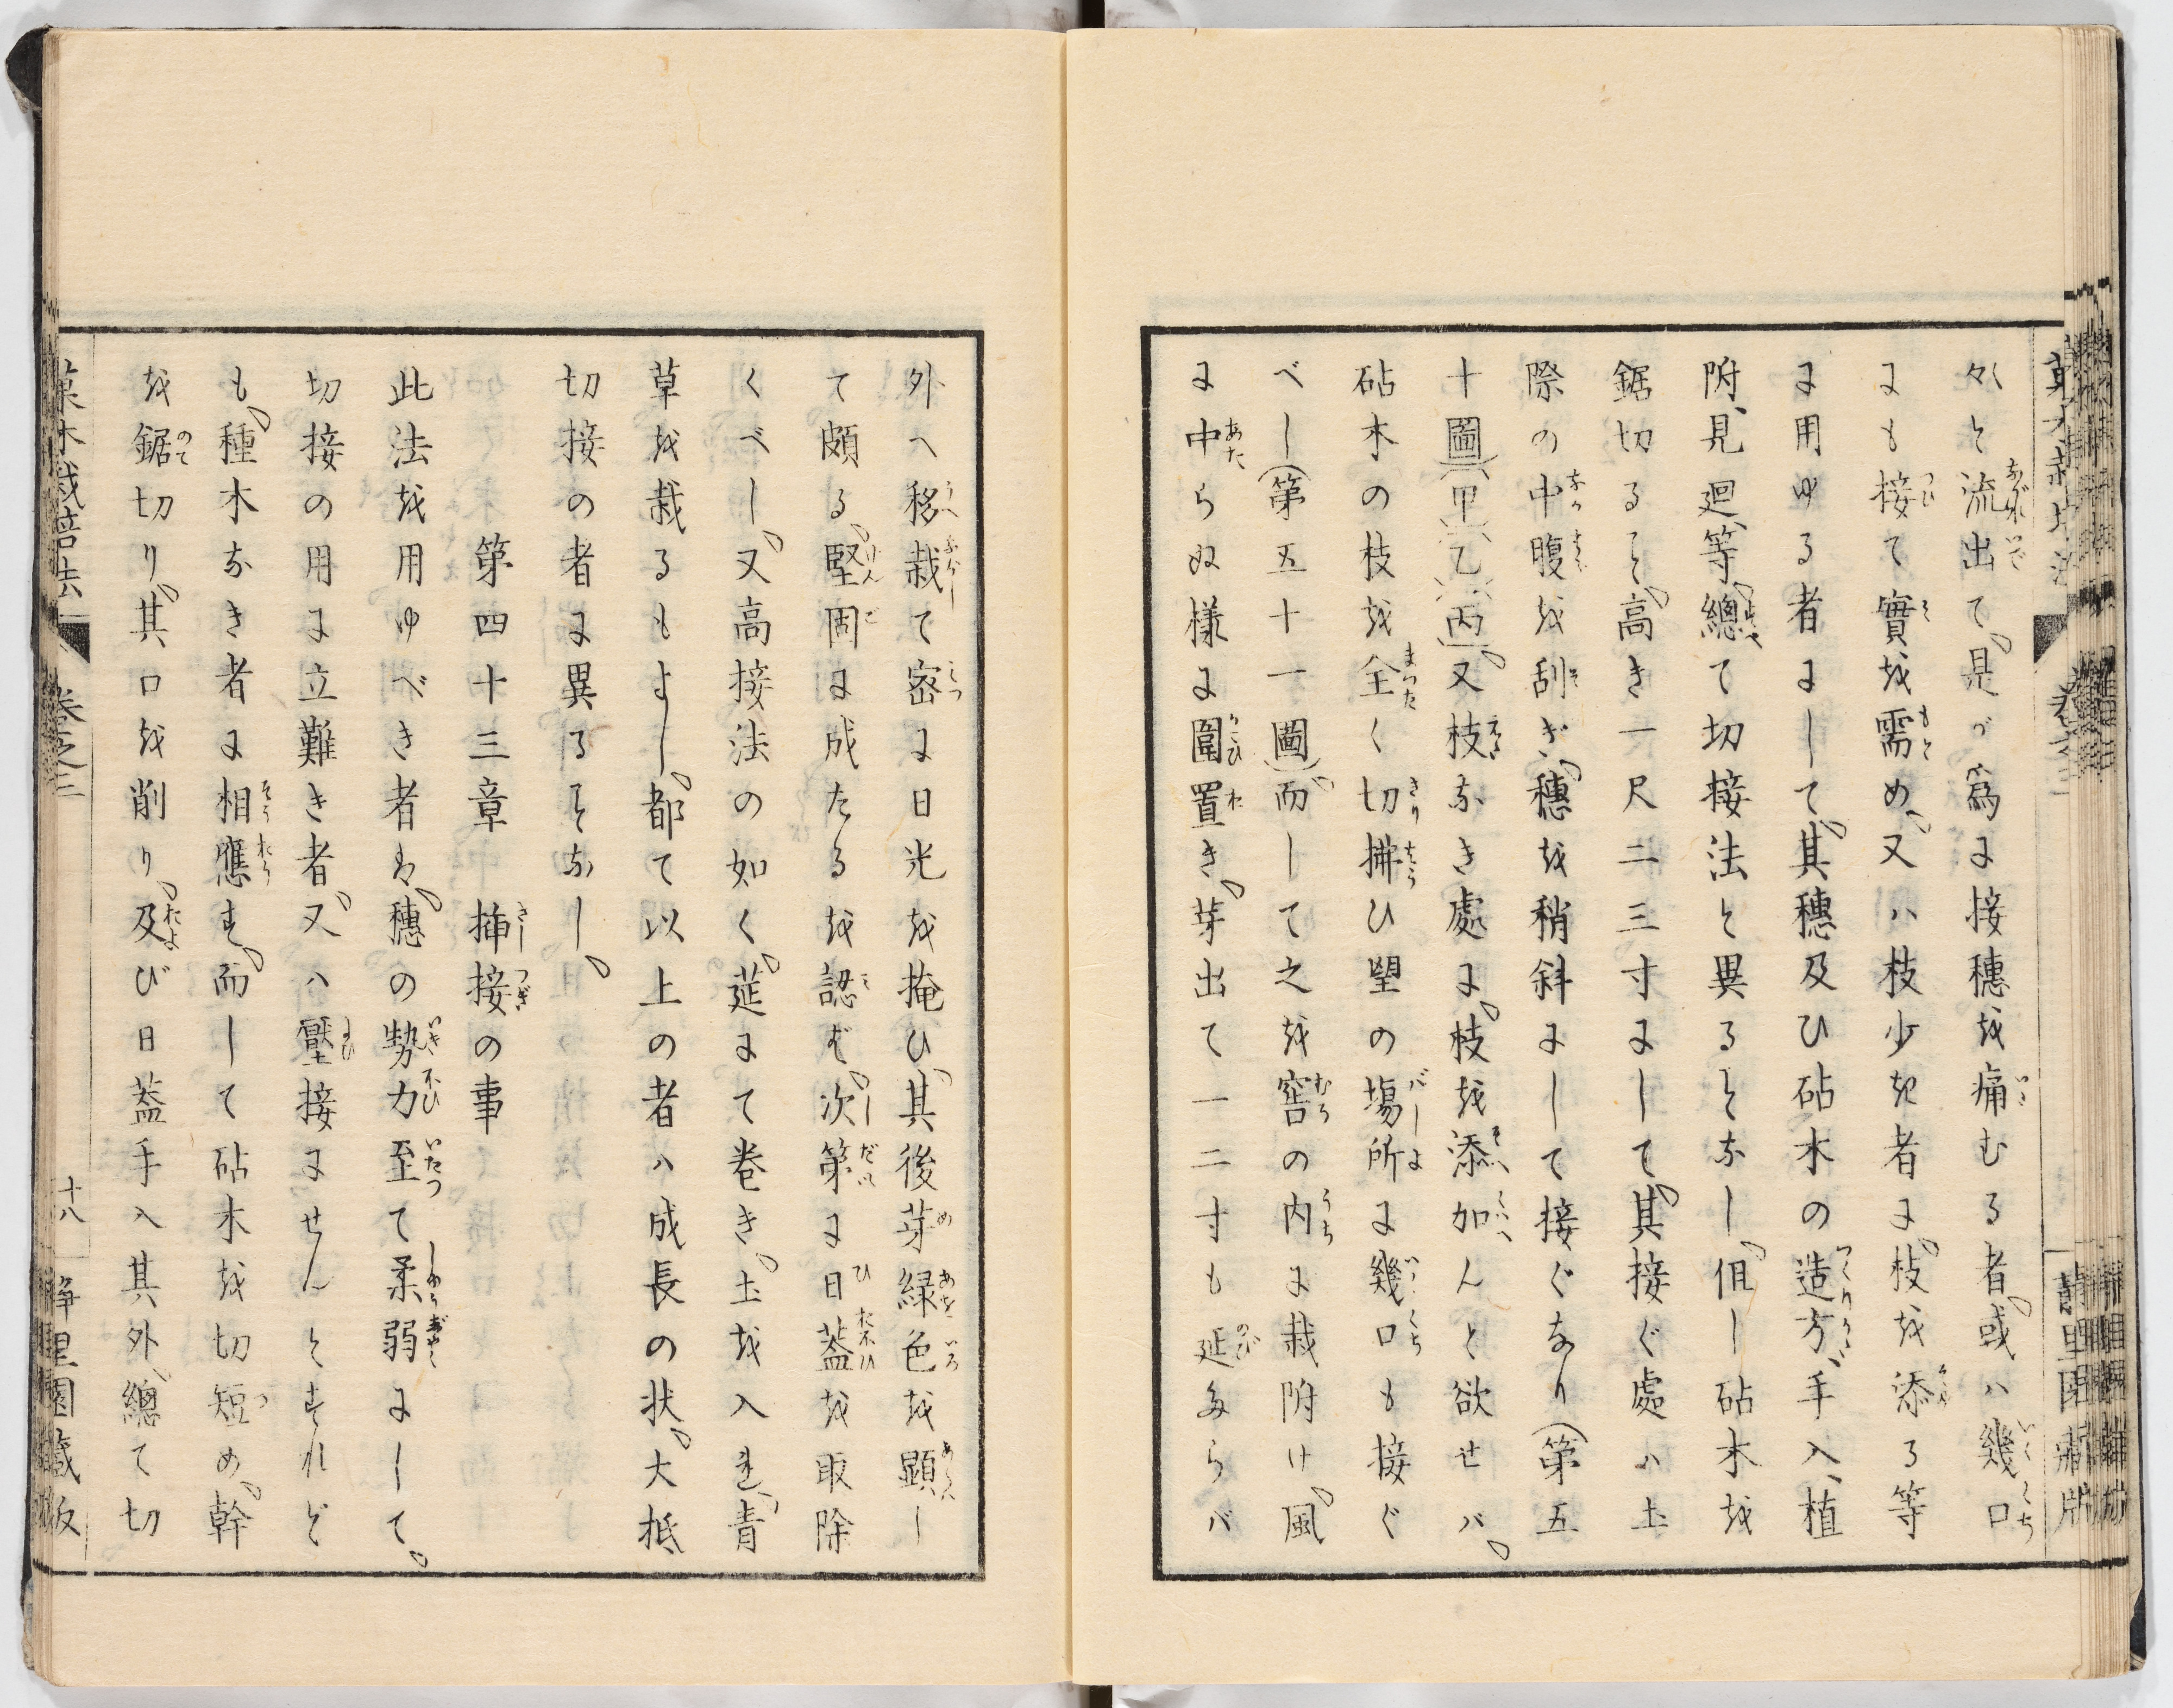 々と流出て、是が爲に接穗を痛むる者、或ハ幾口
にも接て實を需め、又ハ枝少き者に、枝を添る等
に用ゆる者にして、其穗及ひ砧木の造方、手入、植
附、見廻等、總て切接法と異ることなし、但し砧木を
鋸切ること、高き一尺二三寸にして、其接ぐ處ハ土
際の中腹を刮ぎ、穗を稍斜にして接ぐなり（第五
十圖（甲）（乙）（丙））、又枝なき處に、枝を添加んと欲せバ、
砧木の枝を全く切拂ひ望の塲所に幾口も接ぐ
べし（第五十一圖）、而して之を窖の内に栽附け、風
に中らぬ様に圍置き、芽出て一二寸も延多らバ
外へ移栽て密に日光を掩ひ、其後芽緑色を顕し
て頗る、堅固に成たるを認ば、次第に日葢を取除
くべし、又高接法の如く、莚にて巻き、土を入れ、青
草を栽るもよし、都て以上の者ハ成長の状、大抵
切接の者に異ることなし、
第四十三章　挿接の事
此法を用ゆべき者は、穗の勢力至て柔弱にして、
切接の用に立難き者、又ハ壓接にせんとすれど
も、種木なき者に相應す、而して砧木を切短め、幹
を鋸切り、其口を削り、及び日葢手入其外、總て切
菓木栽培法　卷之三　十八　静里園蔵版